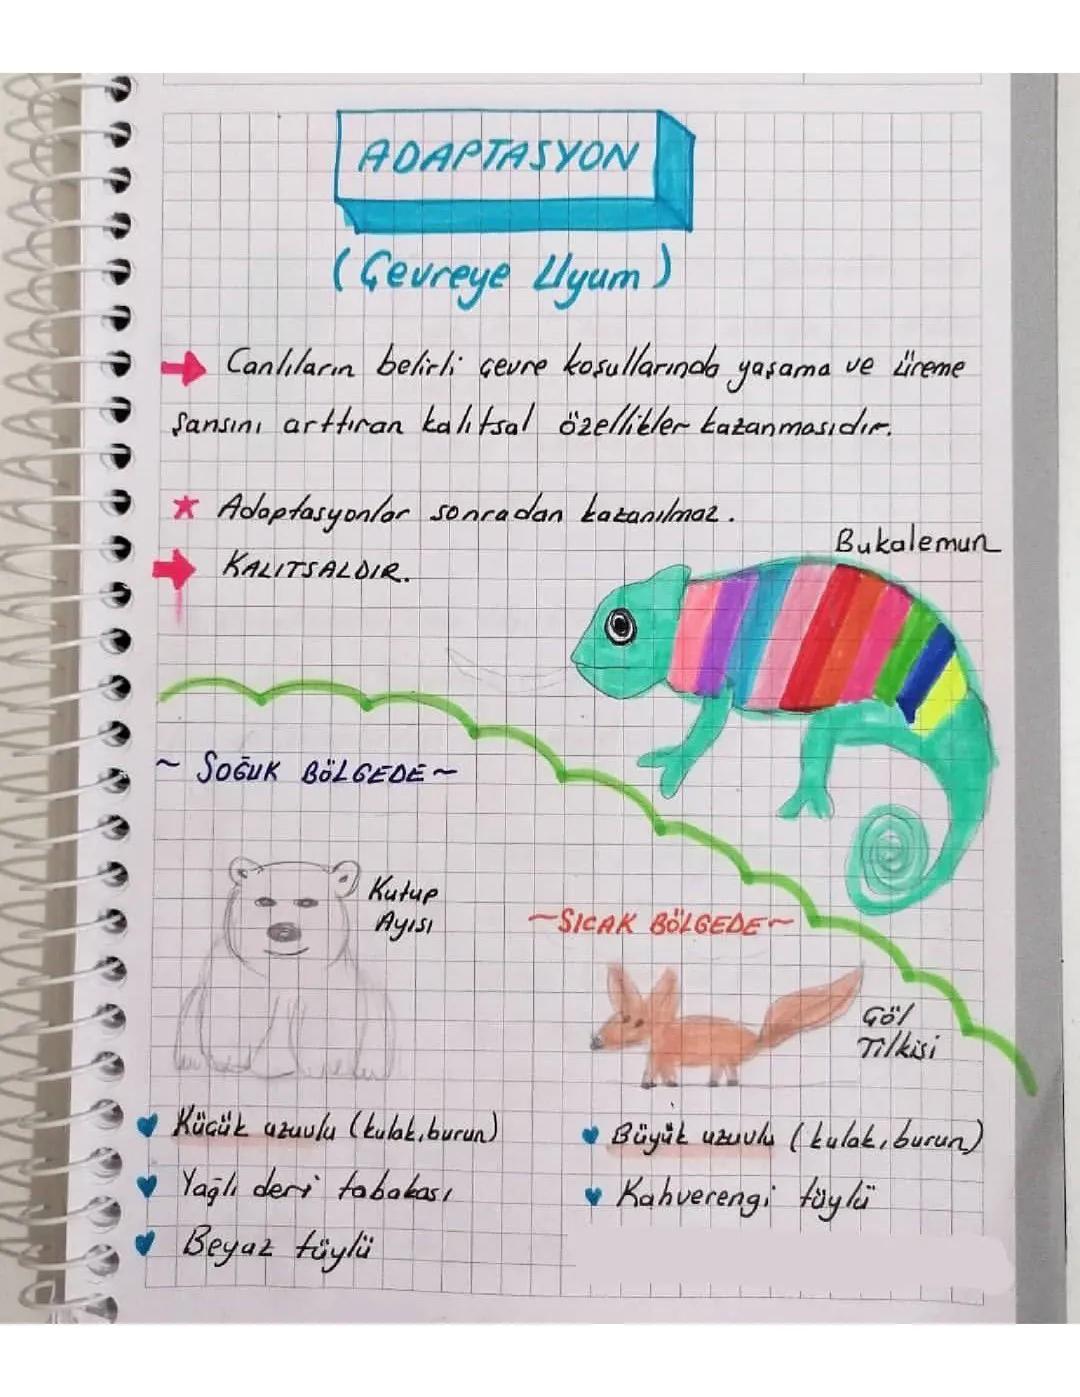 ADAPTASYON
(Çevreye Uyum)
→ Canlıların belirli çevre koşullarında yaşama ve üreme
şansını arttıran kalıtsal özellikler kazanmasıdır.
★ Adaptasyonlar sonradan kazanılmaz.
→ KALITSALDIR.
Bukalemun
~ SOĞUK BÖLGEDE ~
Kutup
Ayısı
~ SICAK BÖLGEDE ~
Çöl
Tilkisi
♥ Küçük uzuvlu (kulak, burun)
♥ Yağlı deri tabakası
♥ Beyaz tüylü
♥ Büyük uzuvlu (kulak, burun)
♥ Kahverengi tüylü